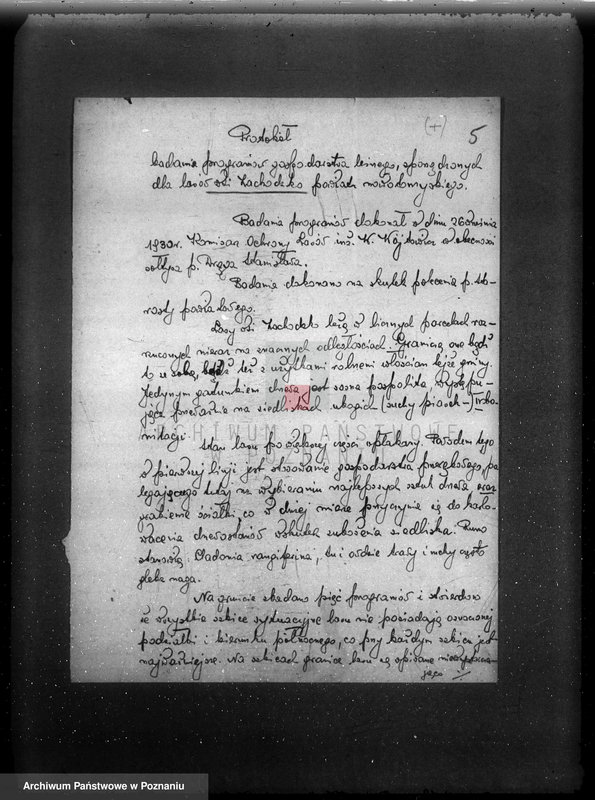 (+) 5
Protokół
badania programów gospodarstwa leśnego, sporządzonych
dla lasów wsi Zachodsko powiatu nowotomyskiego.
Badania programów dokonał w dniu 26 września
1930 r. Komisarz Ochrony Lasów inż. K. Wójtowicz w obecności
sołtysa p. Stanisława.
Badania dokonano na skutek polecenia p. Sta-
rosty powiatowego.
Lasy wsi Zachodsko leżą w licznych parcelach roz-
rzuconych nieraz na znacznych odległościach. Graniczą one bądź
to ze sobą, bądź też z użytkami rolnemi włościan tejże gminy.
Jedynym gatunkiem drzewa jest sosna pospolita, występu-
jąca przeważnie na siedliskach ubogich (suchy piasek-) IV
Stan lasu po większej części opłakany. Powodem tego
w pierwszej linji jest stosowanie gospodarstwa przerębowego, po-
legającego tutaj na wybieraniu najlepszych sztuk drzewa oraz
grabienie ściółki, co w dużej mierze przyczynia się do karło-
wacenia drzewostanów wskutek zubożenia siedliska. Runo
stanowią Cladonia rangiferina, tu i ówdzie trawy i mchy, często
gleba naga.
Na gruncie zbadano pięć programów i stwierdzono
że wszystkie szkice sytuacyjne lasu nie posiadają
podziałki i kierunku północnego, co przy każdym szkicu jest
najważniejsze. Na szkicach granice lasu są opisane niewystarcza-
jąco
ARCHIWUM PAŃSTWOWE
POZNANIE
Archiwum Państwowe w Poznaniu